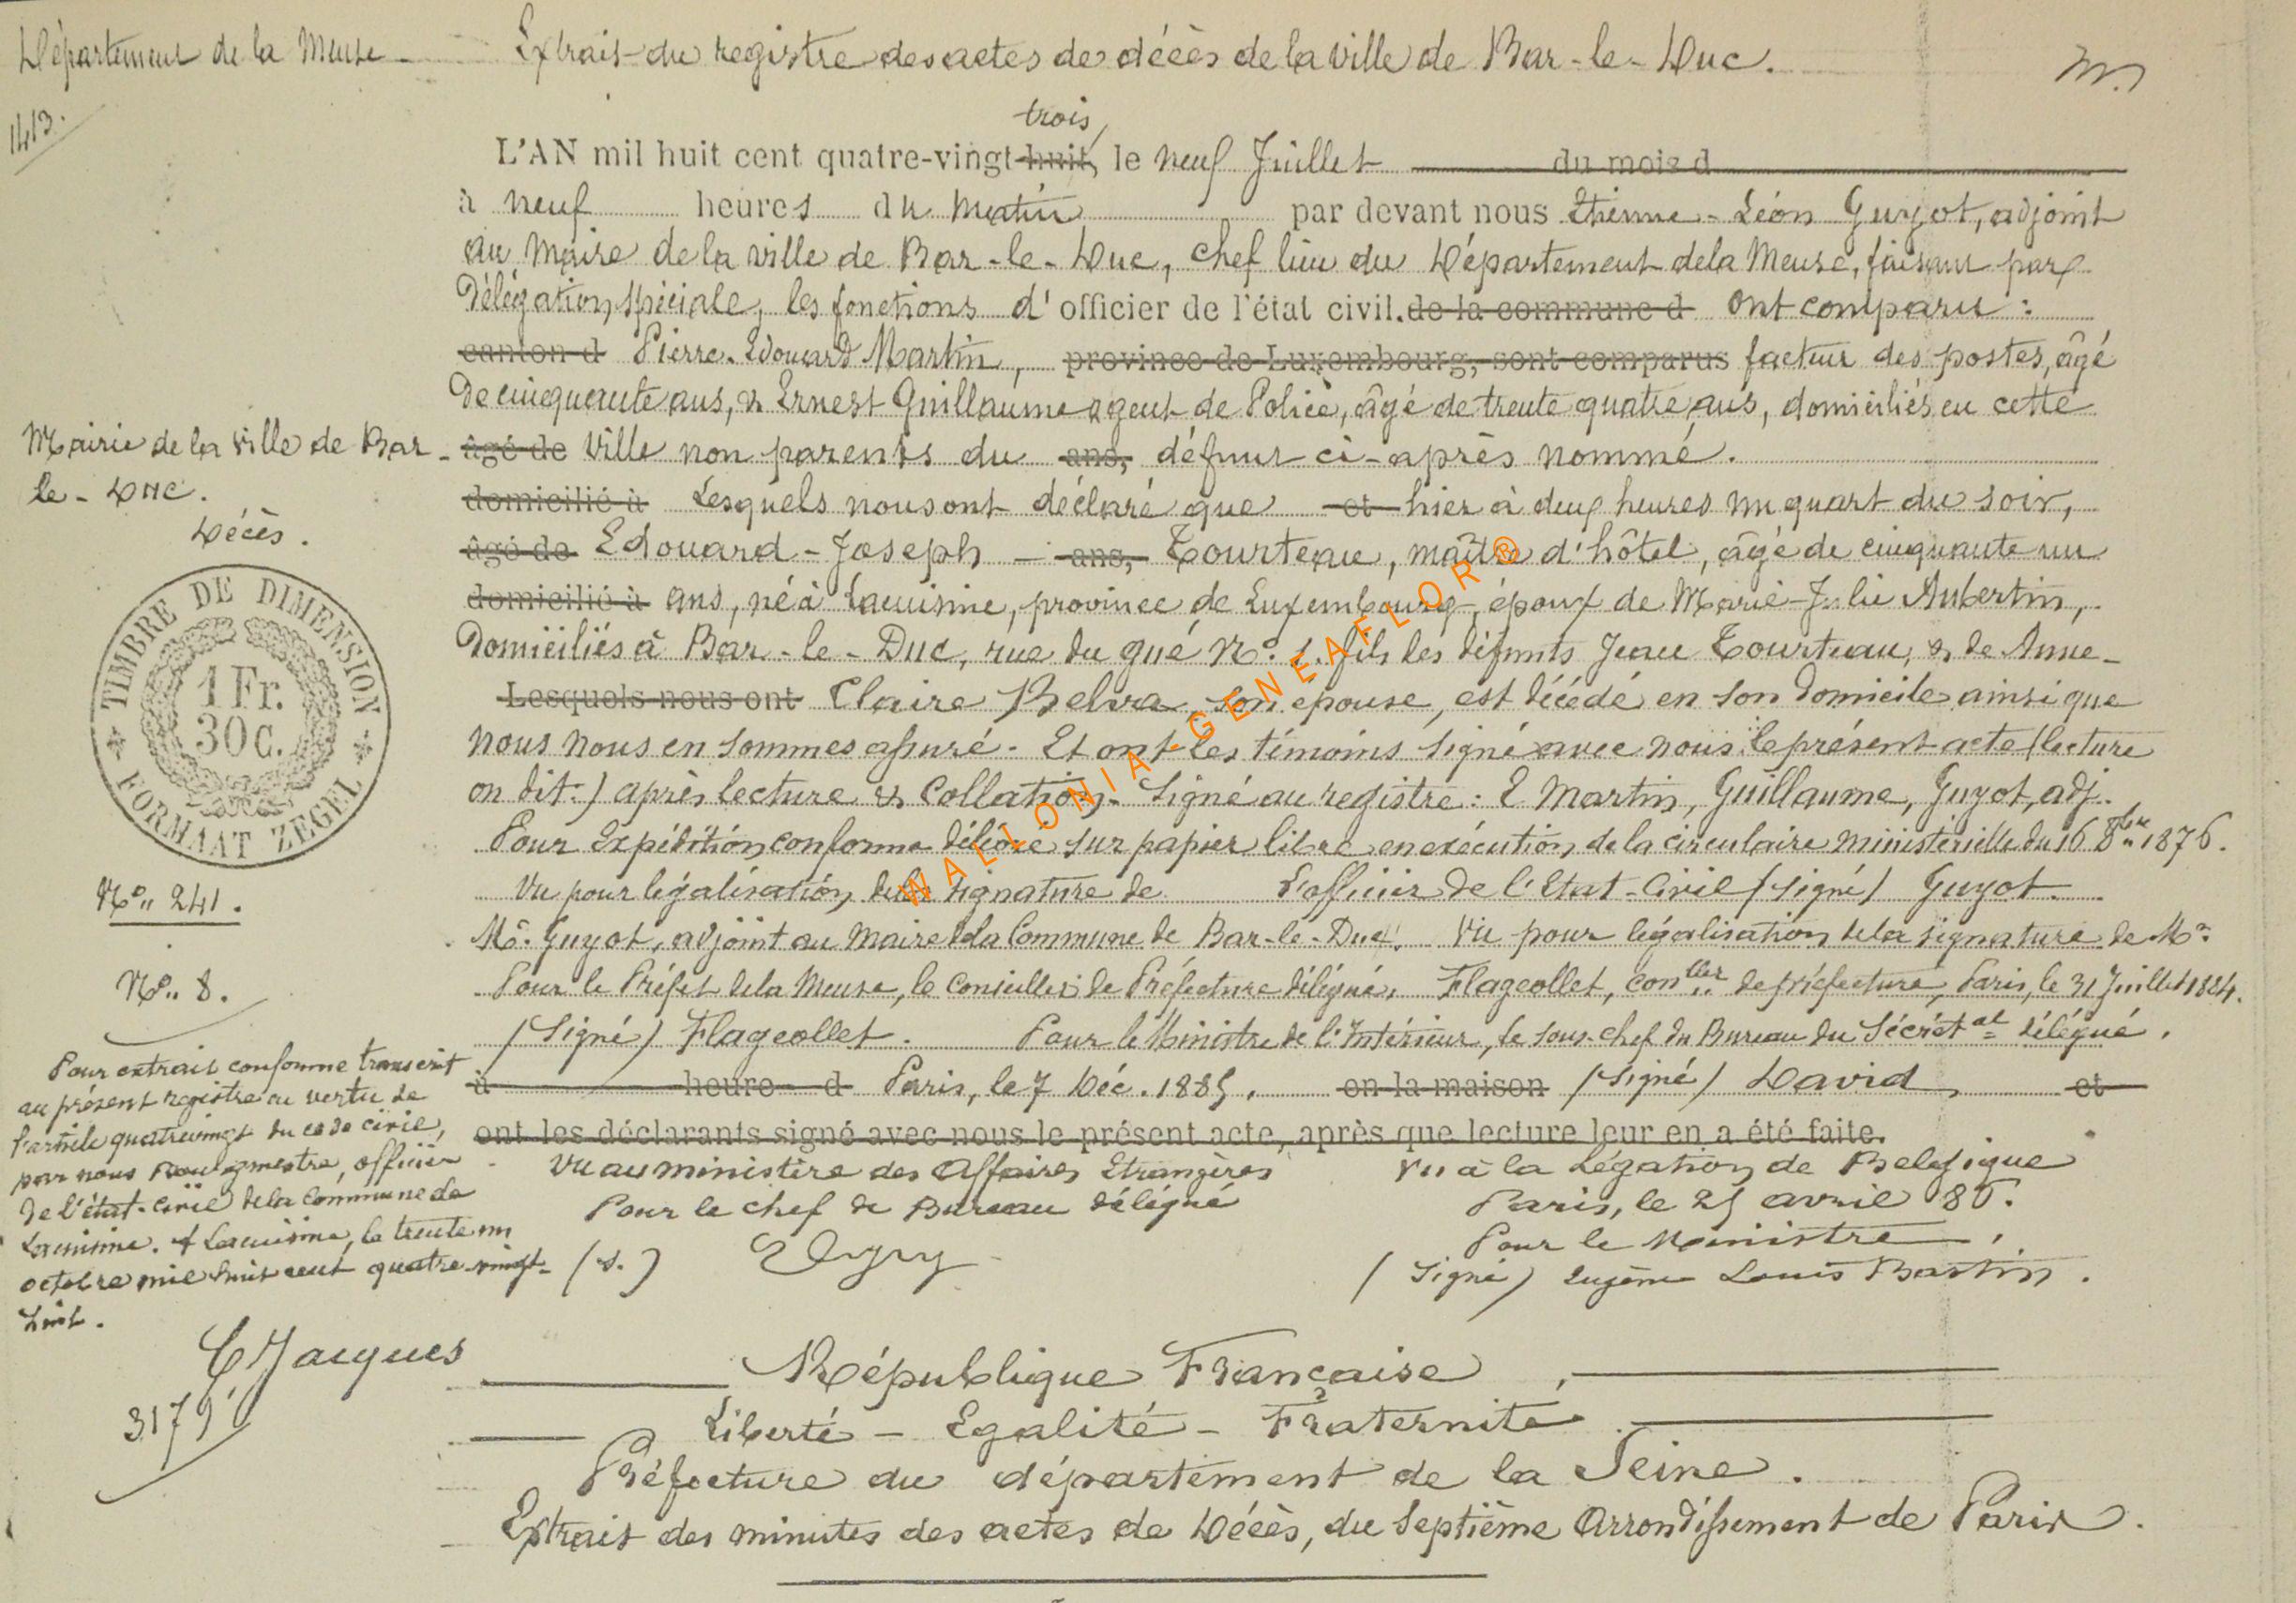 Département de la Meuse - Extrait du registre des actes de décès de la ville de Bar-le-Duc.
1413.
trois
L'AN mil huit cent quatre-vingt-huit, le neuf Juillet du mois d
à neuf heures du matin par devant nous Etienne-Léon Guyot, adjoint
au Maire de la ville de Bar-le-Duc, chef lieu du Département de la Meuse, faisant par
Délégation spéciale, les fonctions d'officier de l'état civil. de la commune d ont comparu :
canton d Pierre-Edouard Martin, province de Luxembourg, sont comparus facteur des postes, âgé
de cinquante ans, & Ernest Guillaume agent de Police, âgé de trente quatre ans, domiciliés en cette
âgé de ville non parents du ans, défunt ci-après nommé.
Mairie de la ville de Bar-
le-Duc.
domicilié à Lesquels nous ont déclaré que et hier à deux heures un quart du soir,
Décès.
âgé de Edouard-Joseph - ans, Tourteau, maître d'hôtel, âgé de cinquante un
domicilié à ans, né à Lacuisine, province de Luxembourg, époux de Marie-Julie Aubertin,
Domiciliés à Bar-le-Duc, rue du gué No. 1. fils des défunts Jean Tourteau, & de Anne-
Lesquels nous ont Claire Belva, son épouse, est décédé en son domicile ainsi que
nous nous en sommes assuré. Et ont les témoins signé avec nous le présent acte (lecture
on dit.) après lecture & collation. Signé au registre : E Martin, Guillaume, Guyot, adj.
Pour Expédition conforme délivré sur papier libre en exécution de la circulaire ministérielle du 16 8bre 1876.
Vu pour légalisation de la signature de L'officier de l'Etat-Civil (signé) Guyot.
Mr. Guyot, adjoint au Maire de la Commune de Bar-le-Duc. Vu pour légalisation de la signature de Mr.
Pour le Préfet de la Meuse, le Conseiller de Préfecture délégué, Flageollet, conller de préfecture, Paris, le 31 Juillet 1884.
(Signé) Flageollet. Pour le Ministre de l'Intérieur, le sous-chef du Bureau du Sécrétal délégué.
à heure d Paris, le 7 Déc. 1885. en la maison (Signé) David, et
ont les déclarants signé avec nous le présent acte, après que lecture leur en a été faite.
Vu au ministère des Affaires Etrangères
Pour le chef de Bureau délégué
(s.)
Vu à la Légation de Belgique
Paris, le 25 avril 86.
Pour le Ministre,
(Signé) Eugène Louis Bastin.
TIMBRE DE DIMENSION
1 Fr.
30 C.
FORMAAT ZEGEL
No.. 241.
No.. 8.
Pour extrait conforme transcrit
au présent registre en vertu de
l'article quatrevingt du code civil,
par nous Bourgmestre, officier
de l'état-civil de la Commune de
Lacuisine. A Lacuisine, le trente un
octobre mil huit cent quatre-vingt-
huit.
Jacques
3179
République Française
Liberté - Egalité - Fraternité
Préfecture du département de la Seine.
Extrait des minutes des actes de Décès, du Septième Arrondissement de Paris.
WALLONIA-GENEAFLOR®